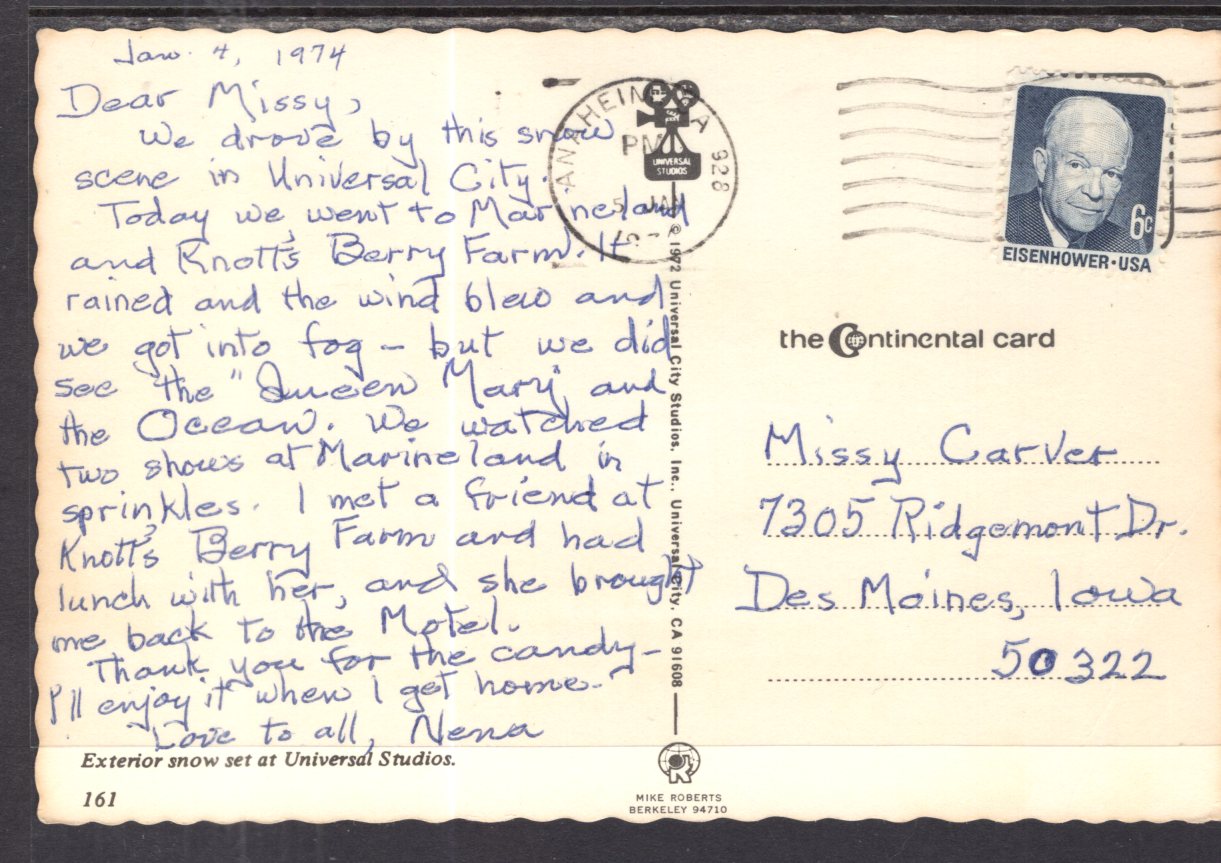 Jan. 4, 1974
Dear Missy,
We drove by this snow
scene in Universal City.
Today we went to Marineland
and Knott's Berry Farm. It
rained and the wind blew and
we got into fog - but we did
see the "Queen Mary" and
the Ocean. We watched
two shows at Marineland in
sprinkles. I met a friend at
Knott's Berry Farm and had
lunch with her, and she brought
me back to the Motel.
Thank you for the candy-
I'll enjoy it when I get home.
Love to all, Nena
Exterior snow set at Universal Studios.
161
ANAHEIM, CA 928
PM
5 JAN
UNIVERSAL
STUDIOS
© 1972 Universal City Studios, Inc., Universal City, CA 91608
MIKE ROBERTS
BERKELEY 94710
6c
EISENHOWER·USA
the Continental card
Missy Carver
7305 Ridgemont Dr.
Des Moines, Iowa
50322